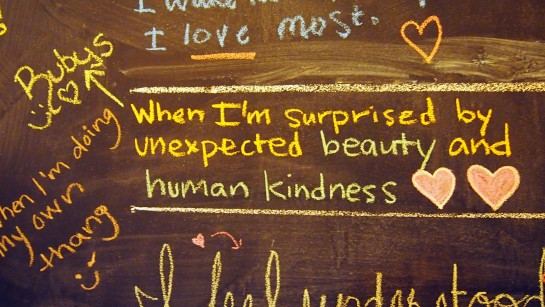 I love most.
Bubys
When I'm surprised by
unexpected beauty and
human kindness
when I'm doing
my own
thang
I feel understood